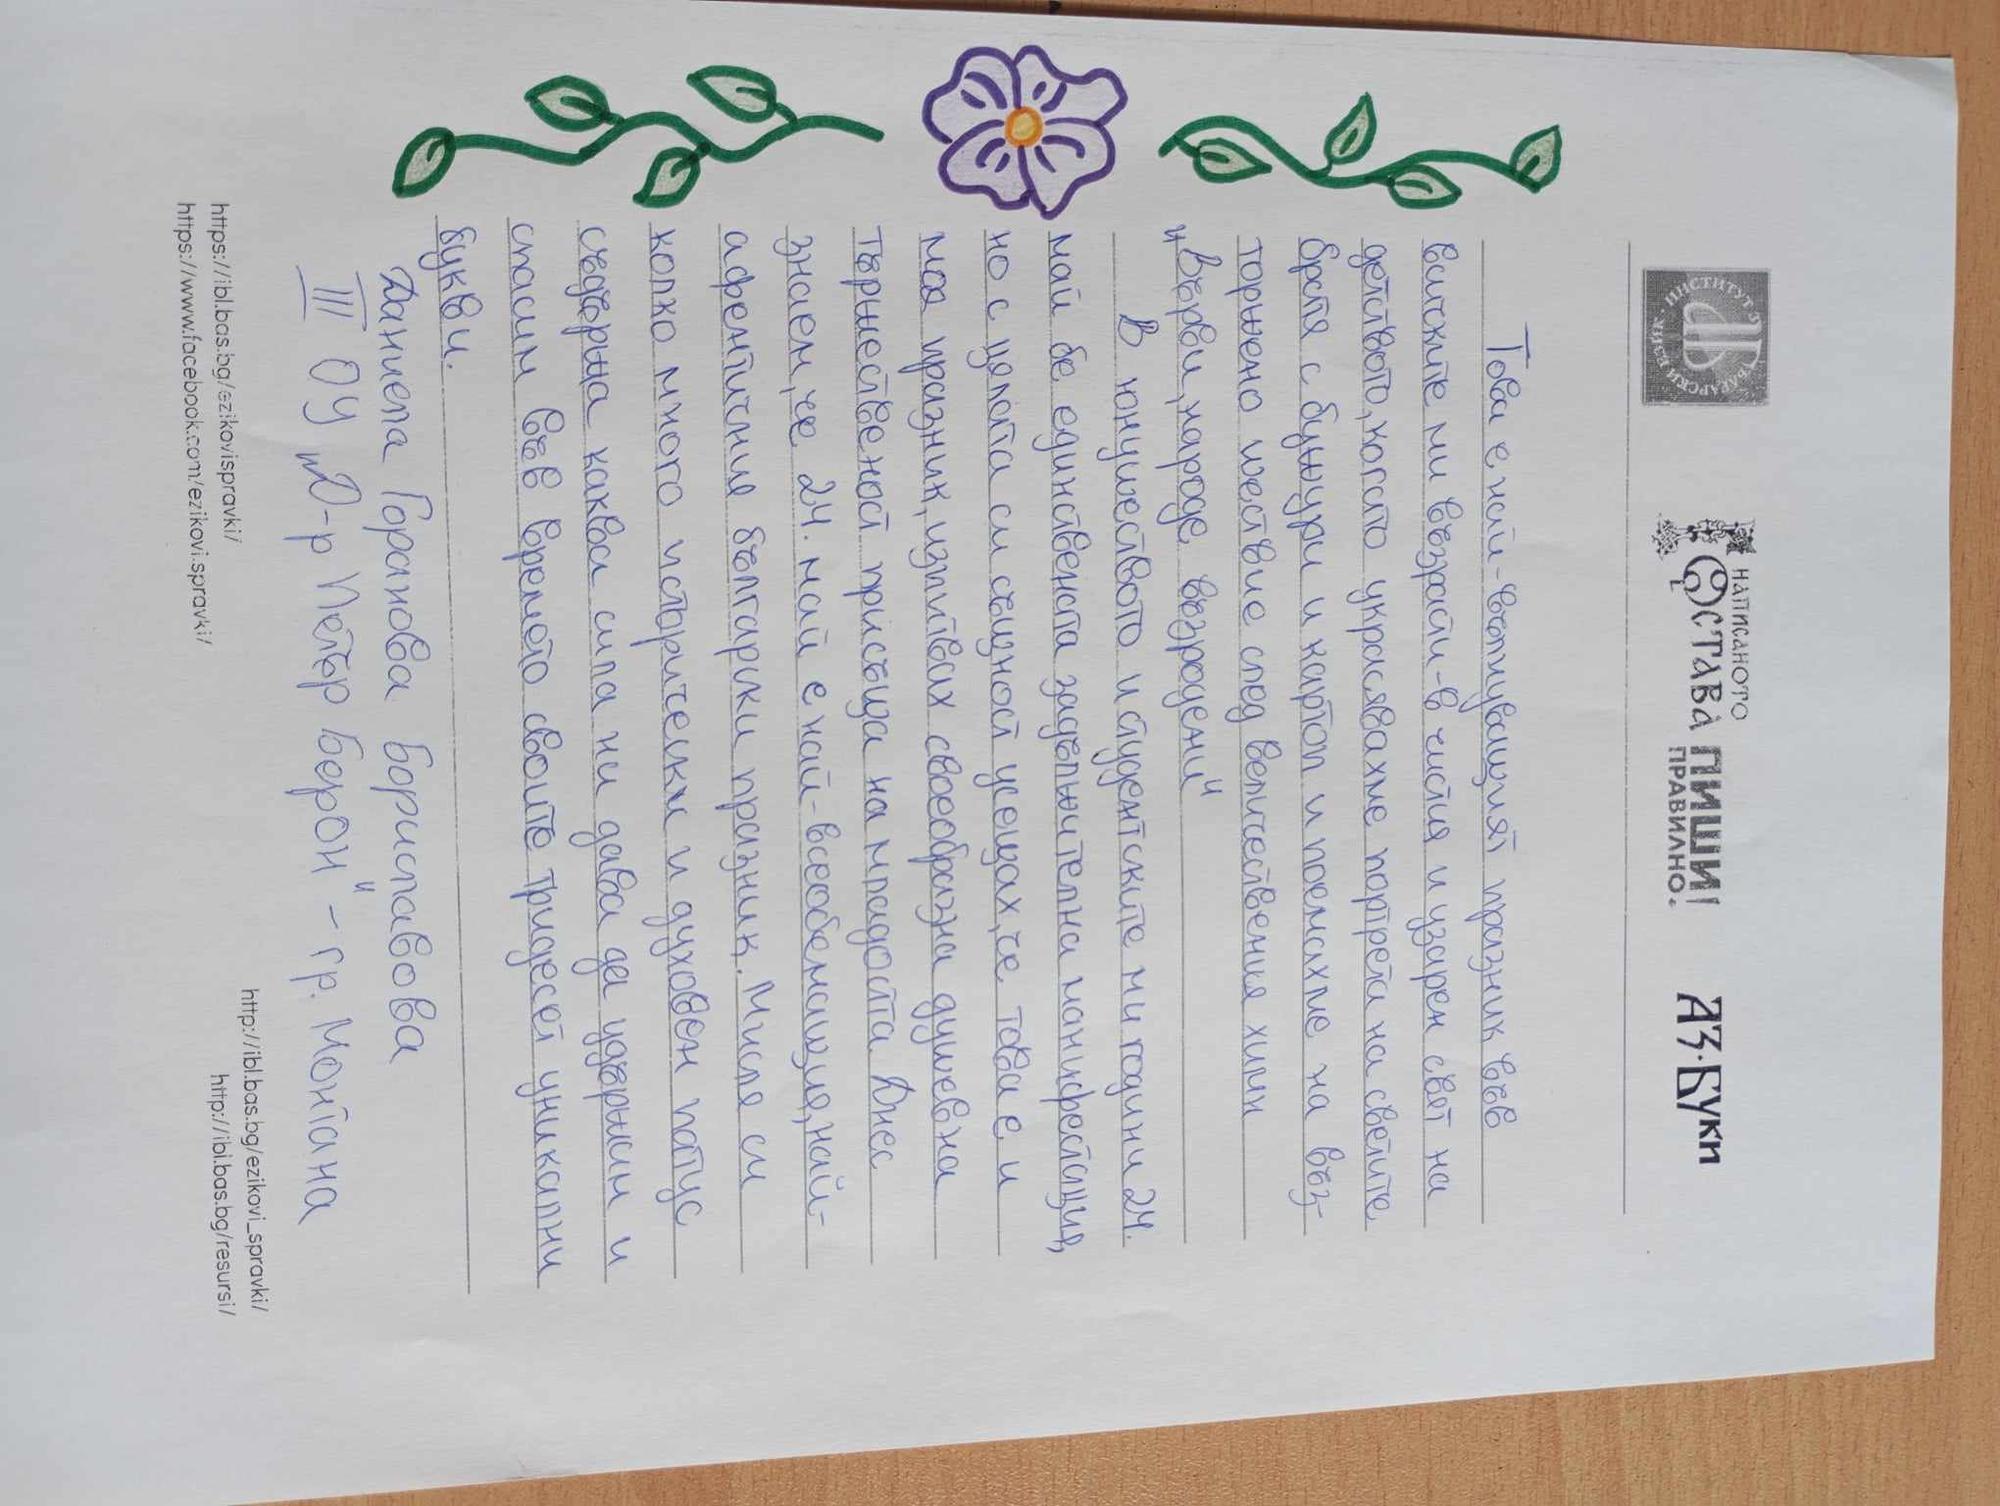 ИНСТИТУТ ЗА БЪЛГАРСКИ ЕЗИК
НАПИСАНОТО
ОСТАВА ПИШИ!
ПРАВИЛНО.
АЗ·БУКИ
Това е най-вълнуващият празник във
всичките ми възрасти-в чистия и узарен свят на
детството, когато украсявахме портрета на светите
братя с божури и
на въз-
торжено шествие след величествения химн
„Върви, народе възродени“
В юношеството и студентските ми години 24.
май бе единствената задължителна манифестация,
но с цялата си същност усещах, че това е и
моя празник, изпитвах своеобразна душевна
тържественост присъща на младостта. Днес
знаем, че 24. май е най-всеобемащия, най-
афентичния български празник. Мисля си
колко много исторически и духовен патус
съдържа каква сила ни дава да удържим и
спасим във времето своите тридесет уникални
букви.
Даниела Горанова Бориславова
III ОУ „Д-р Петър Берон“ - гр. Монтана
https://ibl.bas.bg/ezikovispravki/
https://www.facebook.com/ezikovi.spravki/
http://ibl.bas.bg/ezikovi_spravki/
http://ibl.bas.bg/resursi/